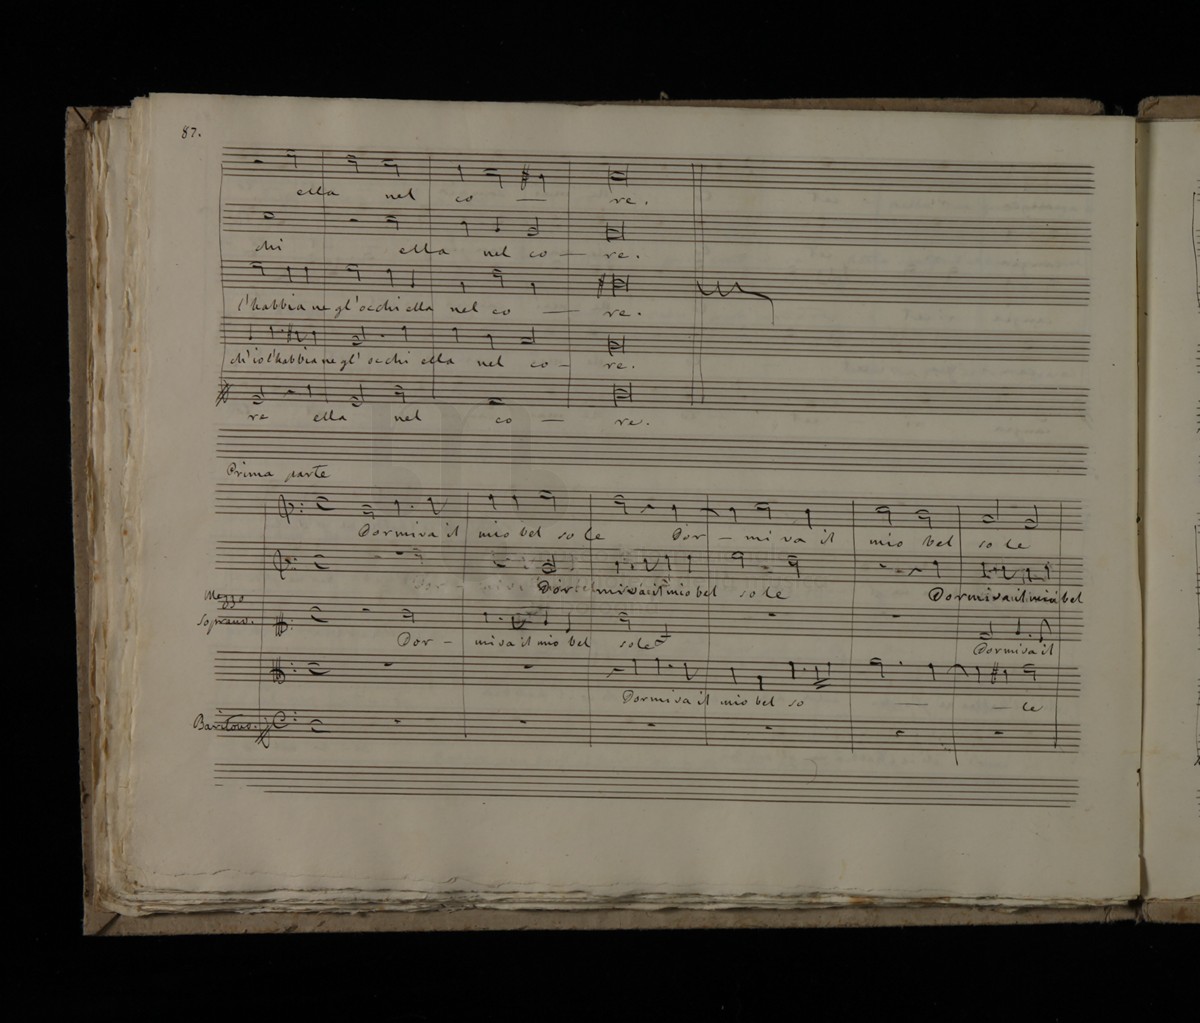 87.
ella nel co — re.
chi ella nel co — re.
l'habbia ne gl'occhi ella nel co — re.
ch'io l'habbia ne gl'occhi ella nel co — re.
re ella nel co — re.
Prima parte
Dormiva il mio bel so le Dor – mi va il mio bel so le
Dormiva il mio bel so le Dormiva il mio bel
Mezzo
Soprano. Dor – miva il mio bel sole Dormiva il
Dormiva il mio bel so — — le
Baritono.